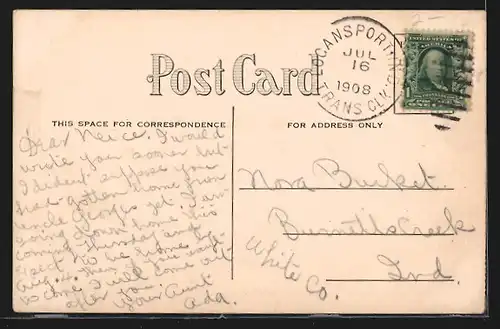 LOGANSPORT, IND.
JUL
16
1908
TRANS. CLK.
UNITED STATES
Post Card
THIS SPACE FOR CORRESPONDENCE
FOR ADDRESS ONLY
Dear Neice. I would
write you sooner but
I dident suppose you
had gotten home from
uncle Georges yet. I am
going down home this
coming Thursday and
to be home
Aug. then if you want
to come I will come out
after you.
Your Aunt
Ada.
Nora Burket.
Burnetts Creek
White Co.
Ind.